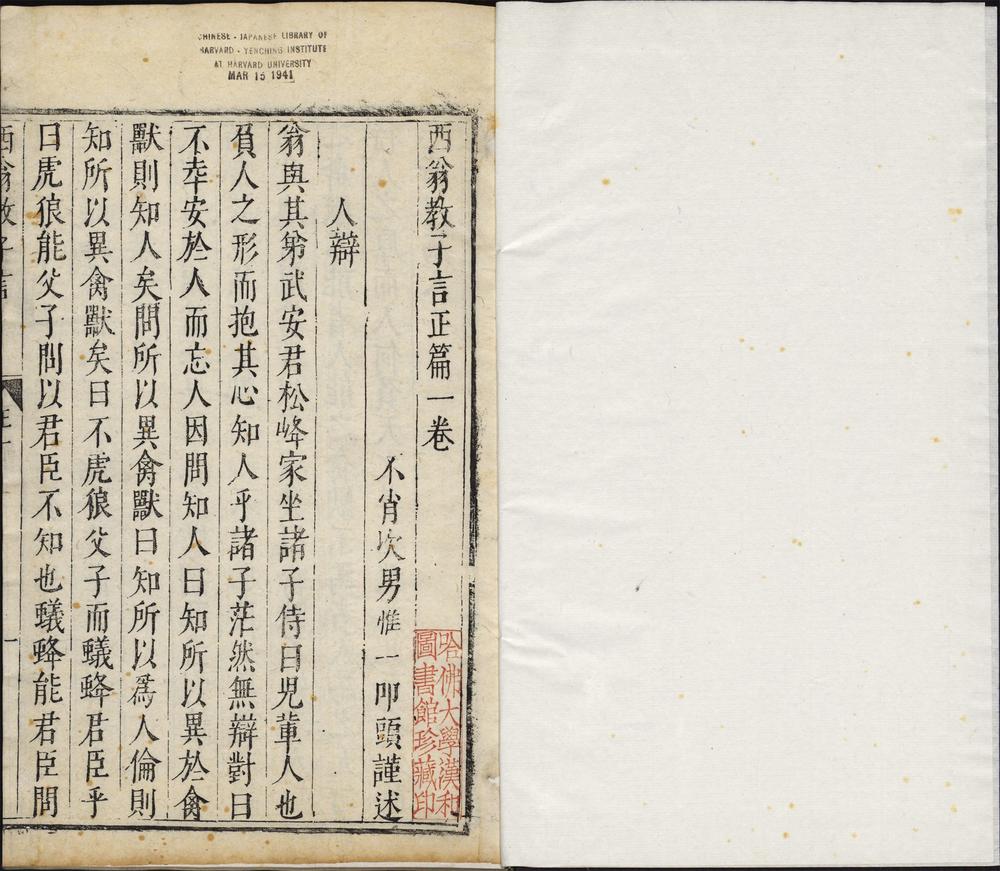 CHINESE - JAPANESE LIBRARY OF
HARVARD - YENCHING INSTITUTE
AT HARVARD UNIVERSITY
MAR 15 1941
西翁教子言正篇一卷
不肖次男惟一叩頭謹述
人辯
翁與其弟武安君松峰家坐諸子侍曰児輩人也
負人之形而抱其心知人乎諸子茫然無辯對曰
不幸安於人而忘人因問知人曰知所以異於禽
獸則知人矣問所以異禽獸曰知所以爲人倫則
知所以異禽獸矣曰不虎狼父子而蟻蜂君臣乎
曰虎狼能父子問以君臣不知也蟻蜂能君臣問
西翁教子言
一
哈佛大學漢和
圖書館珍藏印